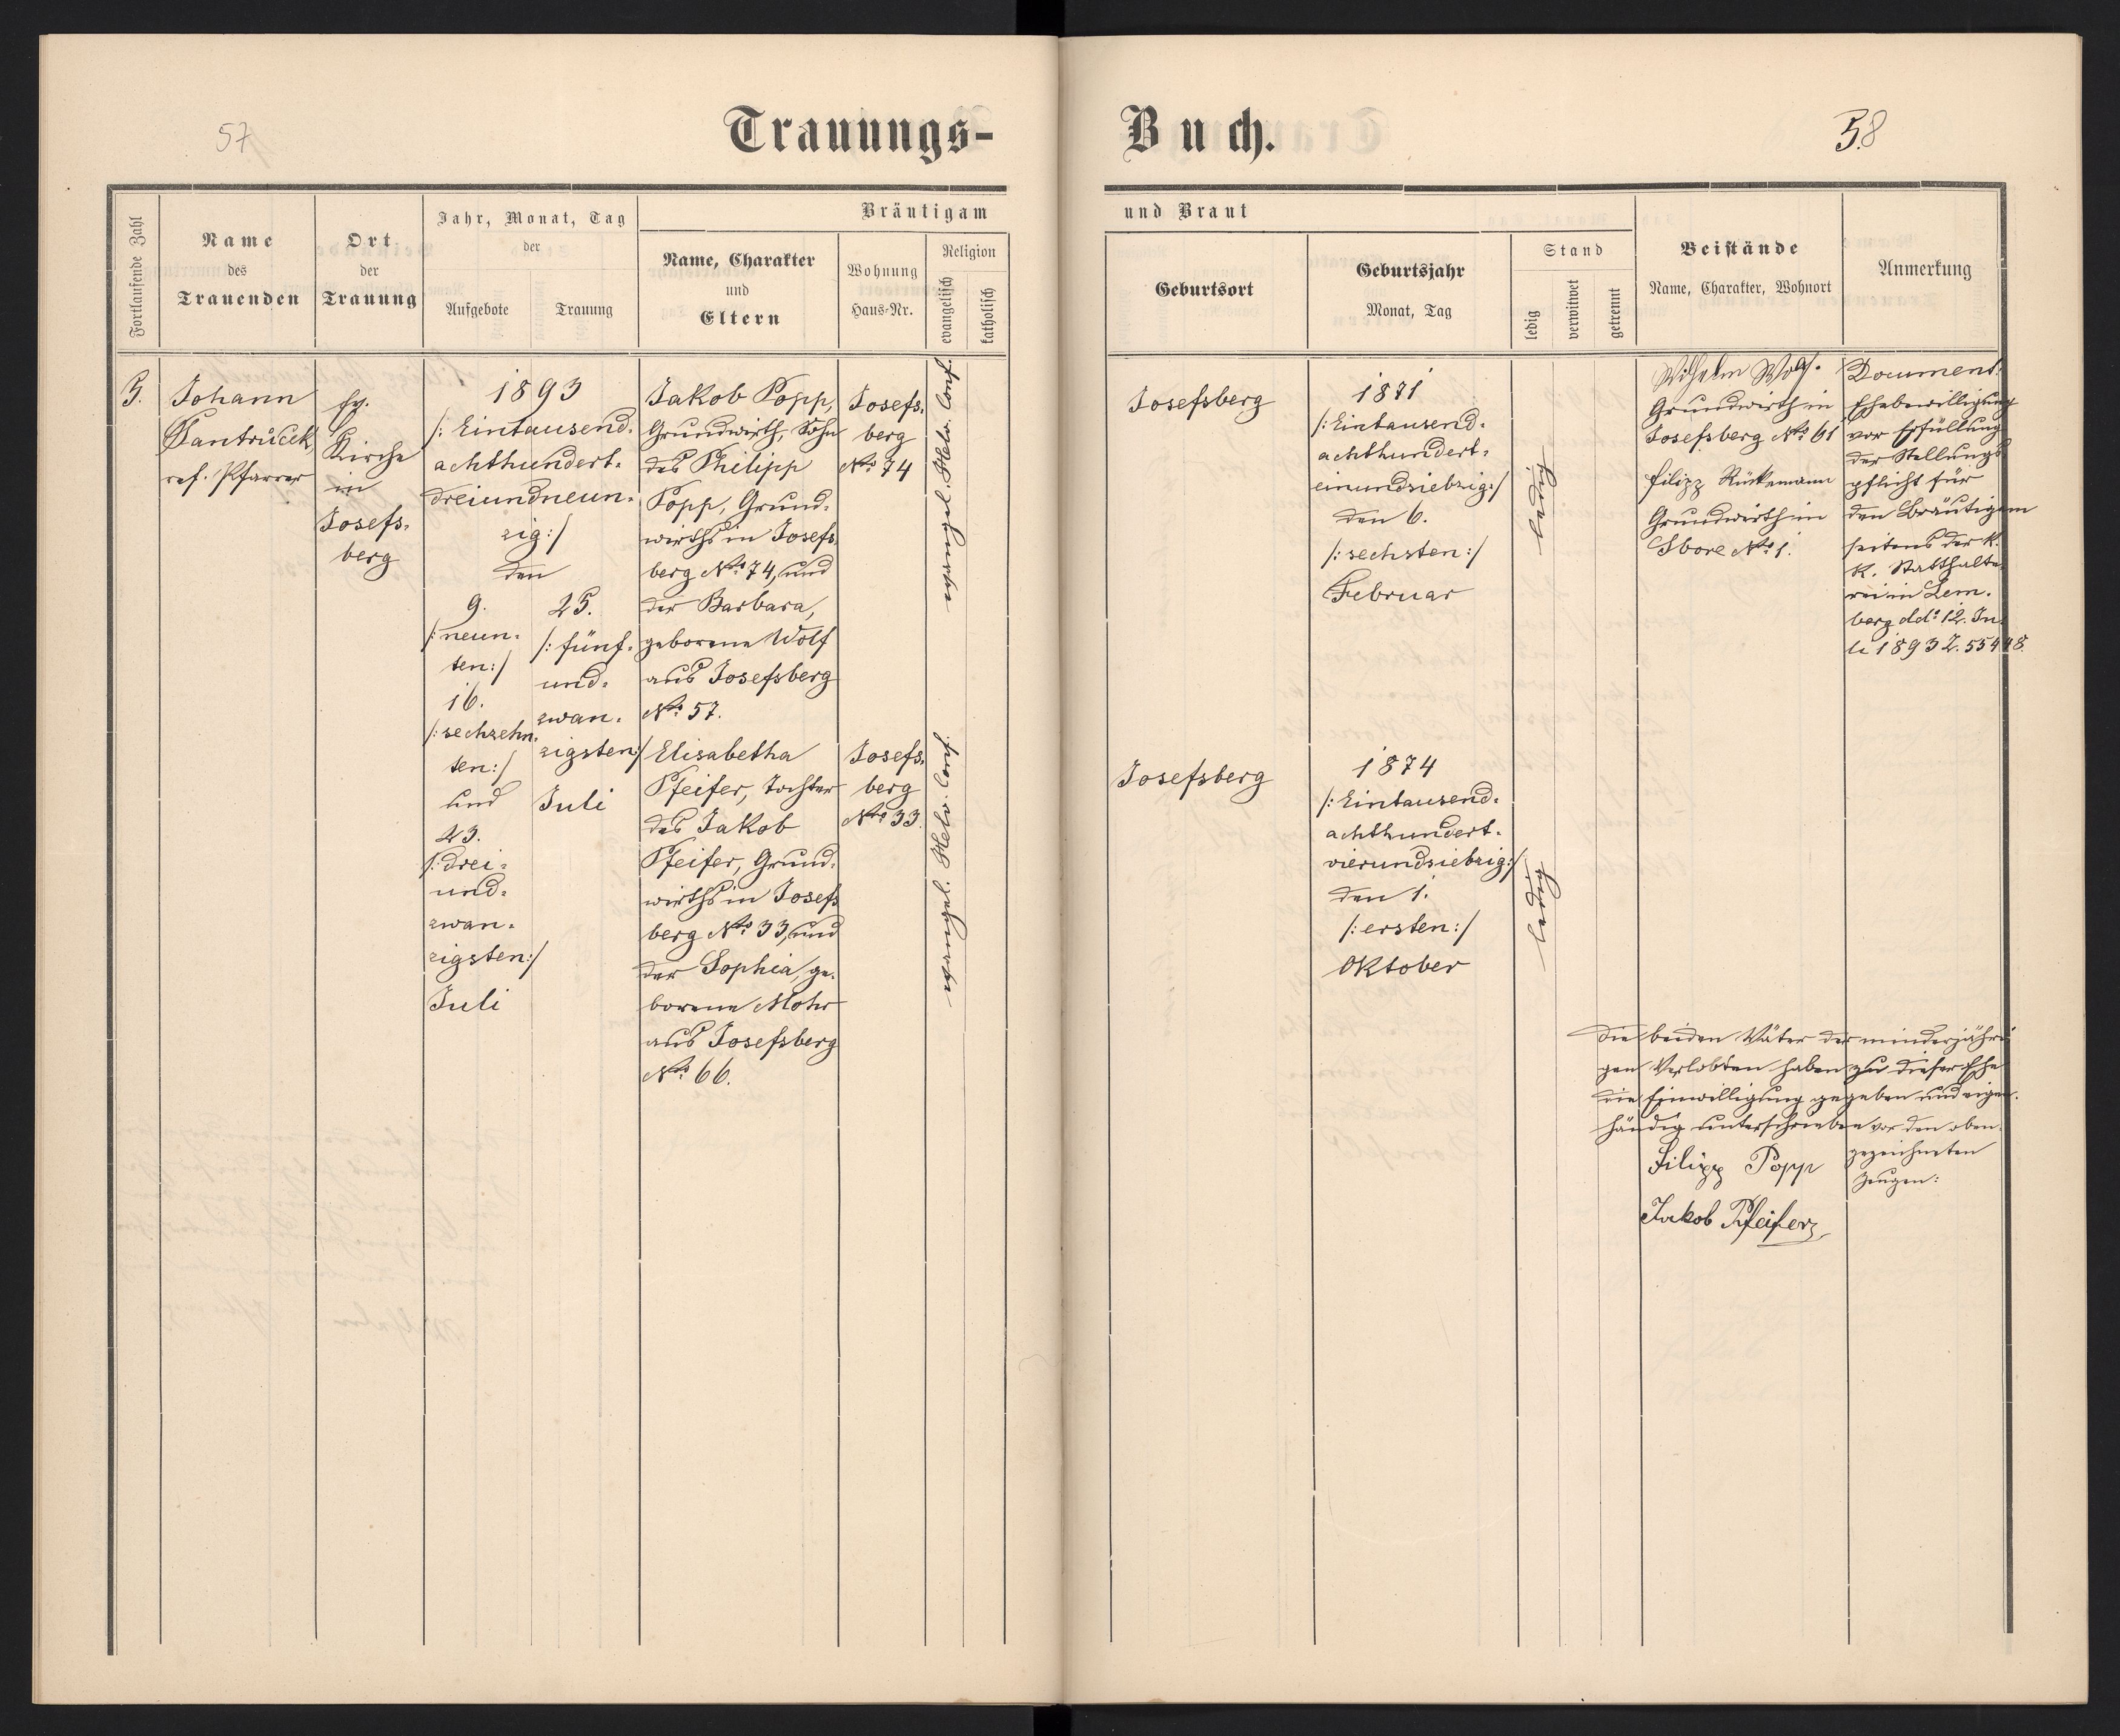 57
Trauungs-
Fortlaufende Zahl
Name
des
Trauenden
Ort
der
Trauung
Jahr, Monat, Tag
der
Aufgebote
Trauung
Bräutigam
Name, Charakter
und
Eltern
Wohnung
Haus-Nr.
Religion
evangelisch
katholisch
Johann
ref. Pfarrer
ev.
Kirche
in
Josefs-
berg
1893
/: Eintausend-
achthundert-
dreiundneun-
zig:/
den
9.
/: neun-
ten:/
16.
/: sechzehn-
ten:/
und
23.
/: drei-
und-
zwan-
zigsten:/
Juli
25.
/: fünf-
und-
zwan-
zigsten:/
Juli
Jakob Popp,
Grundwirth, Sohn
des Philipp
Popp, Grund-
wirths in Josefs
berg Nro 74, und
der Barbara,
geborene Wolf
aus Josefsberg
Nro 57.
Josefs-
berg
Nro 74
evangel. Helv. Conf.
Elisabetha
Pfeifer, Tochter
des Jakob
Pfeifer, Grund-
wirths in Josefs
berg Nro 33, und
der Sophia, ge-
borene Mohr
aus Josefsberg
Nro 66.
Josefs-
berg
Nro 33.
evangel. Helv. Conf.
Buch.
58
und Braut
Geburtsort
Geburtsjahr
Monat, Tag
Stand
ledig
verwitwet
getrennt
Beistände
Name, Charakter, Wohnort
Anmerkung
Josefsberg
1871
/: Eintausend-
achthundert-
einundsiebzig:/
den 6.
/: sechsten:/
Februar
ledig
Wilhelm Wolf.
Grundwirth in
Josefsberg Nro 61
Filipp Rückemann
Grundwirth in
Nro 1.
Document:
Ehebewilligung
vor Erfüllung
der Stellungs
pflicht für
den Bräutigam
seitens der k.
k. Statthalte-
rei in Lem-
berg ddo 12. Ju-
li 1893 Z. 55448.
Josefsberg
1874
/: Eintausend-
achthundert-
vierundsiebzig:/
den 1.
/: ersten:/
Oktober
ledig
Die beiden Väter der minderjähri-
gen Verlobten haben zu dieser Ehe
die Einwilligung gegeben und eigen-
händig unterschrieben vor den oben-
gezeichneten
Zeugen:
Filipp Popp
Jakob Pfeifer